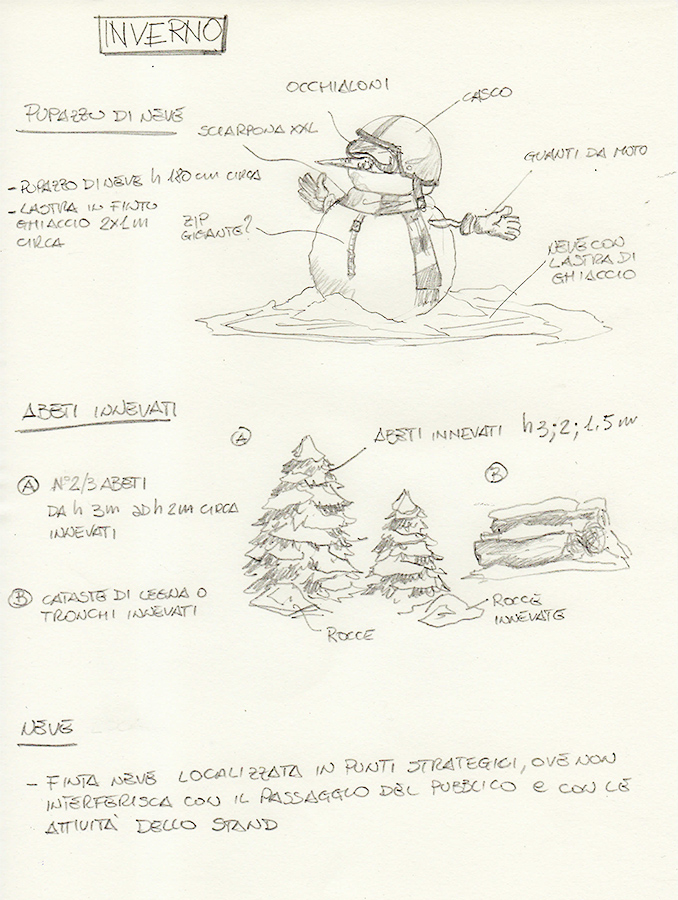 INVERNO
PUPAZZO DI NEVE
- PUPAZZO DI NEVE h 180 cm CIRCA
- LASTRA IN FINTO
GHIACCIO 2x1 m
CIRCA
OCCHIALONI
CASCO
SCIARPONA XXL
GUANTI DA MOTO
ZIP
GIGANTE?
NEVE CON
LASTRA DI
GHIACCIO
ABETI INNEVATI
A N°2/3 ABETI
DA h 3m ad h 2m CIRCA
INNEVATI
B CATASTE DI LEGNA O
TRONCHI INNEVATI
A
ABETI INNEVATI h 3; 2; 1.5 m
B
ROCCE
ROCCE
INNEVATE
NEVE
- FINTA NEVE LOCALIZZATA IN PUNTI STRATEGICI, OVE NON
INTERFERISCA CON IL PASSAGGIO DEL PUBBLICO E CON LE
ATTIVITÀ DELLO STAND